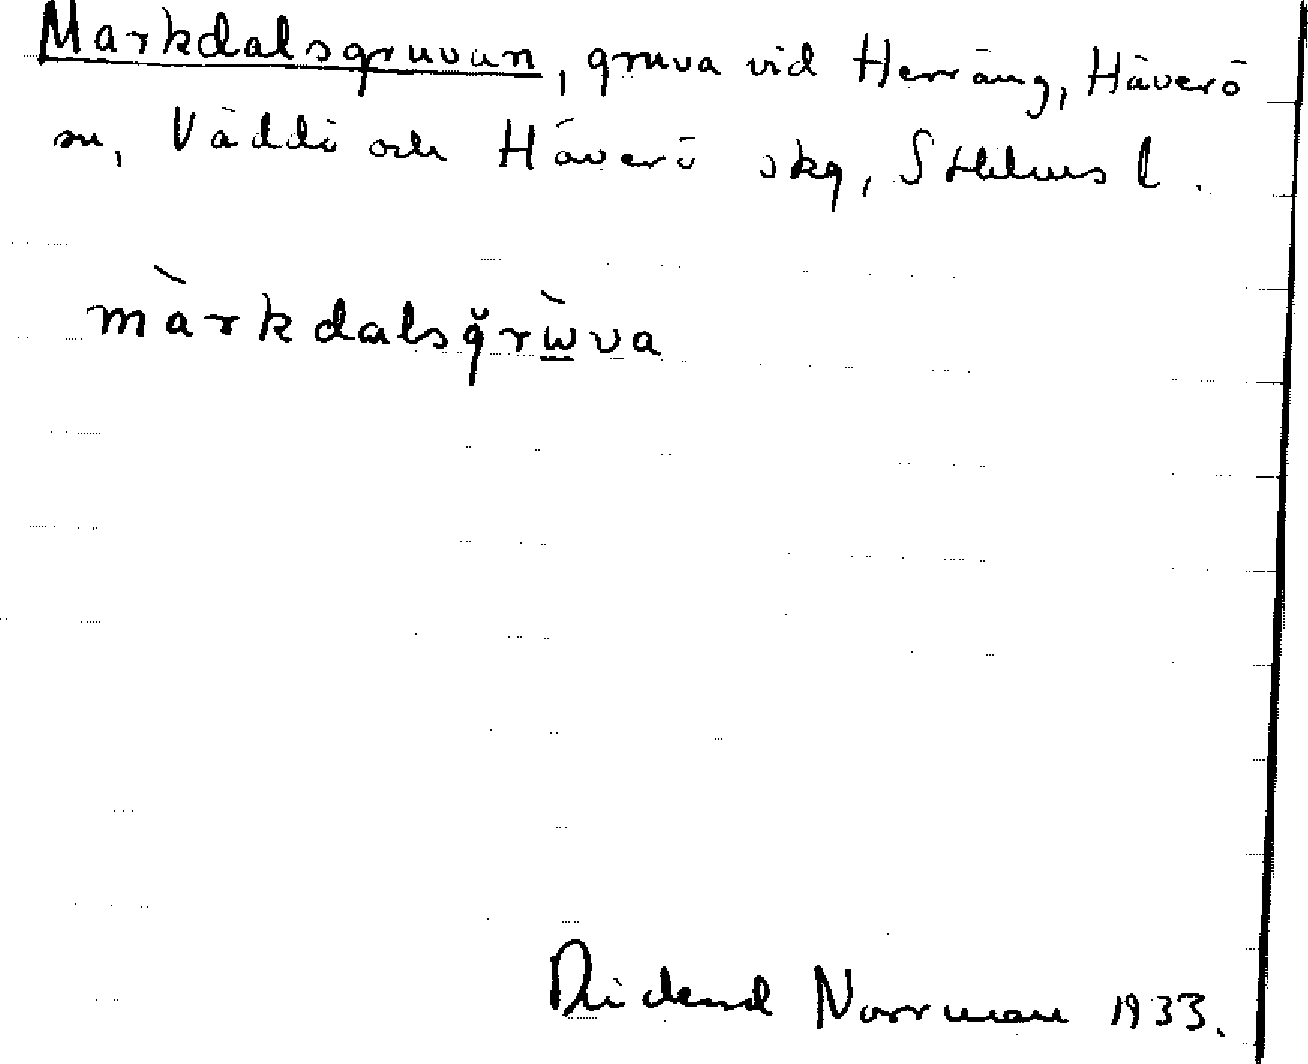 Markdalsgruvan, gruva vid Herräng, Häverö
sn, Väddö och Häverö skg, Sthlms l.
màrkdalsğrẁva
Norrman 1933.